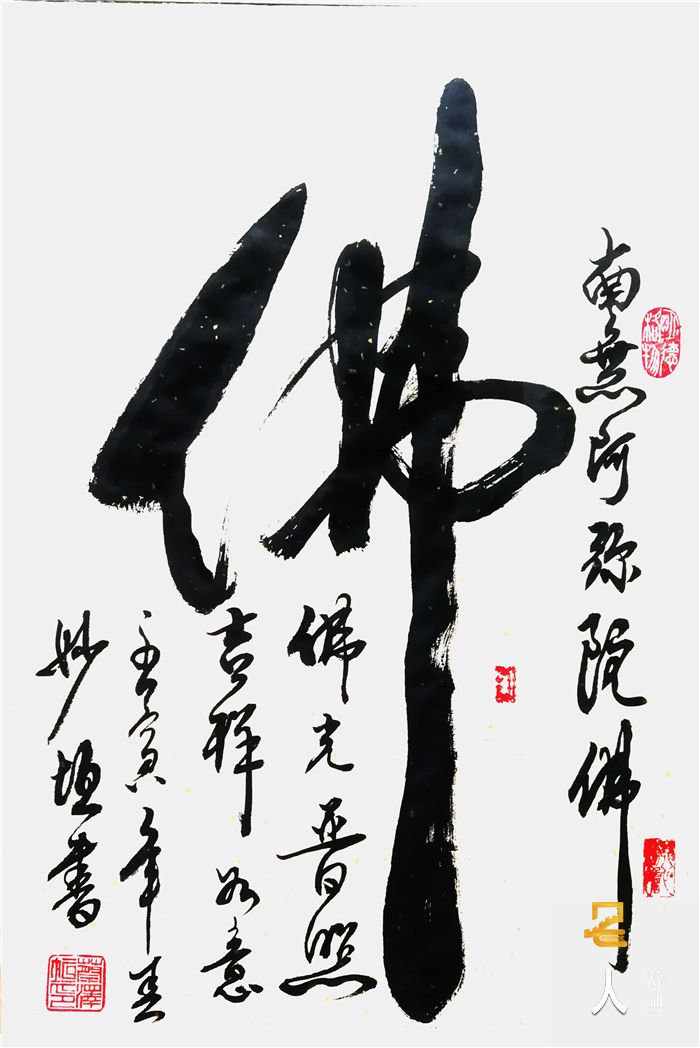 南無阿弥陀佛
佛
佛光普照
吉祥如意
壬寅年春
妙垣書
名人
辞典